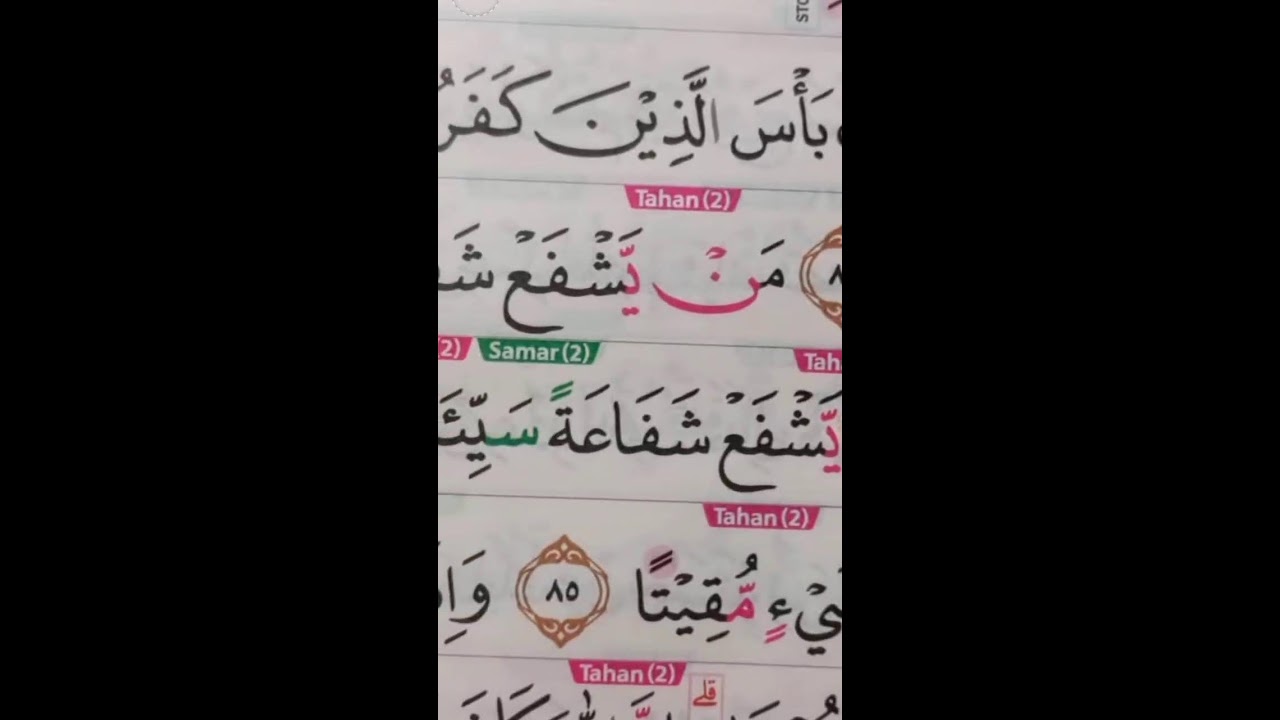 بَأْسَ الَّذِيْنَ كَفَرُ
Tahan (2)
مَنْ يَّشْفَعْ شَفَ
Samar (2)
يَّشْفَعْ شَفَاعَةً سَيِّئَ
Tahan (2)
مُّقِيْتًا ٨٥ وَاِ
Tahan (2)
قلى